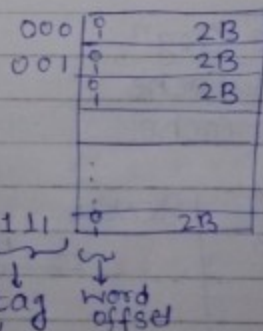 000 0 1 2B
001 0 1 2B
0 1 2B
111 0 1 2B
tag word
offset